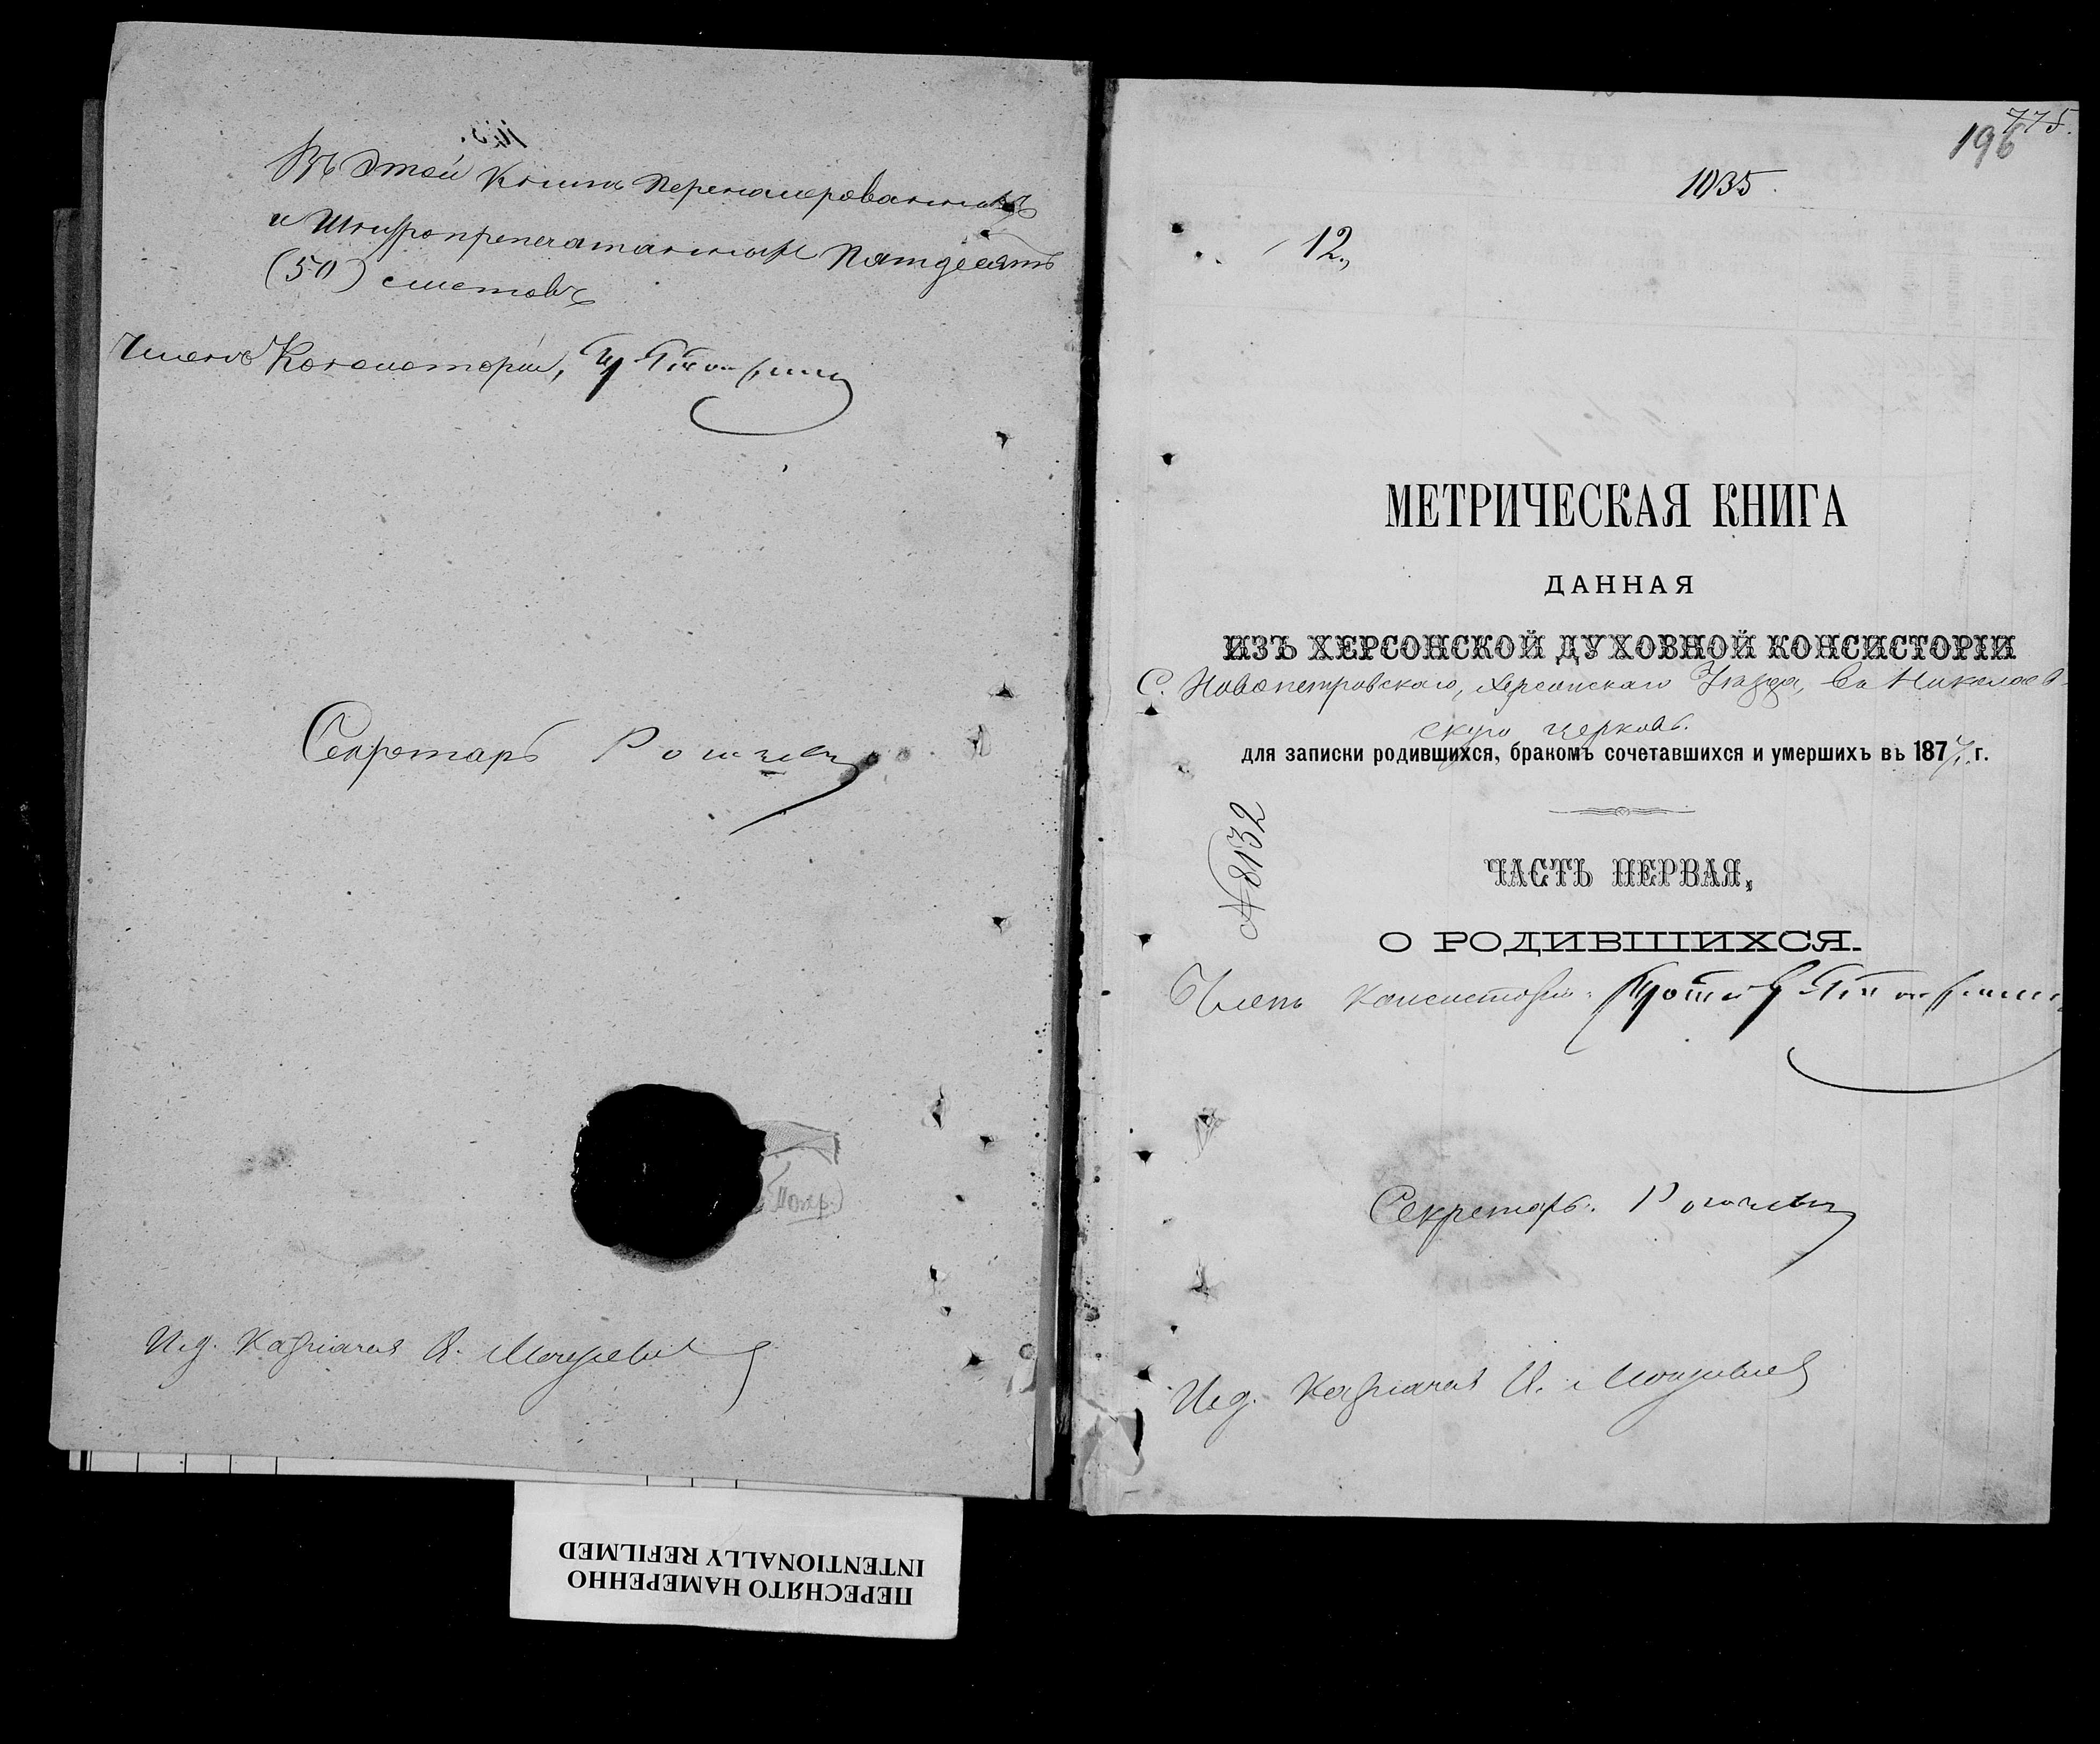 Въ этой книгѣ перенамерованныхъ
и шнуропрепечатанныхъ пятдесятъ
(50) листовъ
Членъ Консисторіи,
Секретарь
И. д. Казначея
775.
196
1035.
12.
МЕТРИЧЕСКАЯ КНИГА
ДАННАЯ
ИЗЪ ХЕРСОНСКОЙ ДУХОВНОЙ КОНСИСТОРІИ
С. Новопетровскаго, Херсонскаго Уѣзда, въ Николаев-
скую церковь.
для записки родившихся, бракомъ сочетавшихся и умершихъ въ 187 г.
№8132
ЧАСТЬ ПЕРВАЯ,
О РОДИВШИХСЯ.
Членъ Консисторіи:
Секретарь:
И. д. Казначея
ПЕРЕСНЯТО НАМЕРЕННО
INTENTIONALLY REFILMED